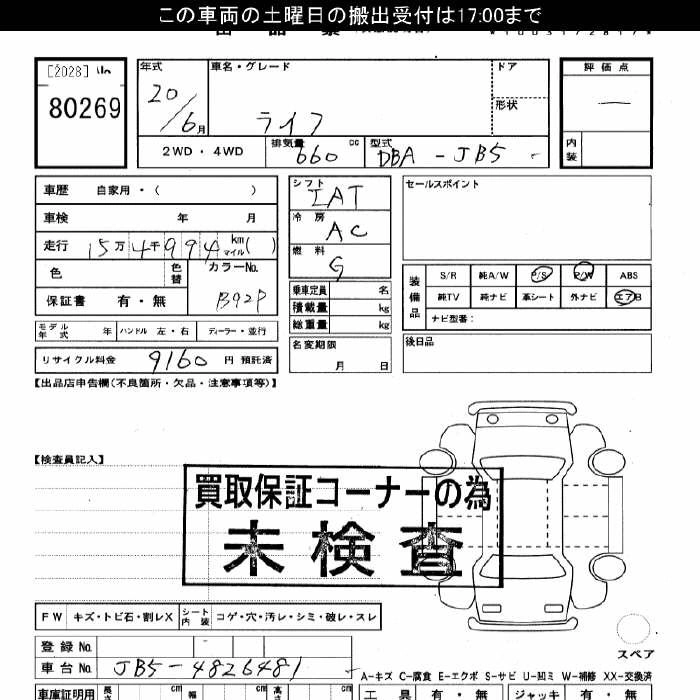 この車両の土曜日の搬出受付は17:00まで
[2028]
80269
年式
20/6月
車名・グレード
ライフ
ドア
形状
2WD・4WD
排気量 660 cc
型式 DBA-JB5
評価点
内装
車歴 自家用・( )
車検 年 月
走行 15万4千994 km マイル( )
色 色替 カラーNo. B92P
保証書 有・無
シフト IAT
冷房 AC
燃料 G
乗車定員 名
積載量 kg
総重量 kg
名変期限
月 日
セールスポイント
装備品
S/R 純A/W P/S P/W ABS
純TV 純ナビ 革シート 外ナビ エアB
ナビ型番:
後日品
モデル年式 年 ハンドル 左・右 ディーラー・並行
リサイクル料金 9160 円 預託済
【出品店申告欄(不良箇所・欠品・注意事項等)】
【検査員記入】
買取保証コーナーの為
未検査
FW キズ・トビ石・割レX シート内装 コゲ・穴・汚レ・シミ・破レ・スレ
登録No.
車台No. JB5-4826481
スペア
A-キズ C-腐食 E-エクボ S-サビ U-凹ミ W-補修 XX-交換済
車庫証明用 長さ cm 幅 cm 高さ cm
工具 有・無 ジャッキ 有・無